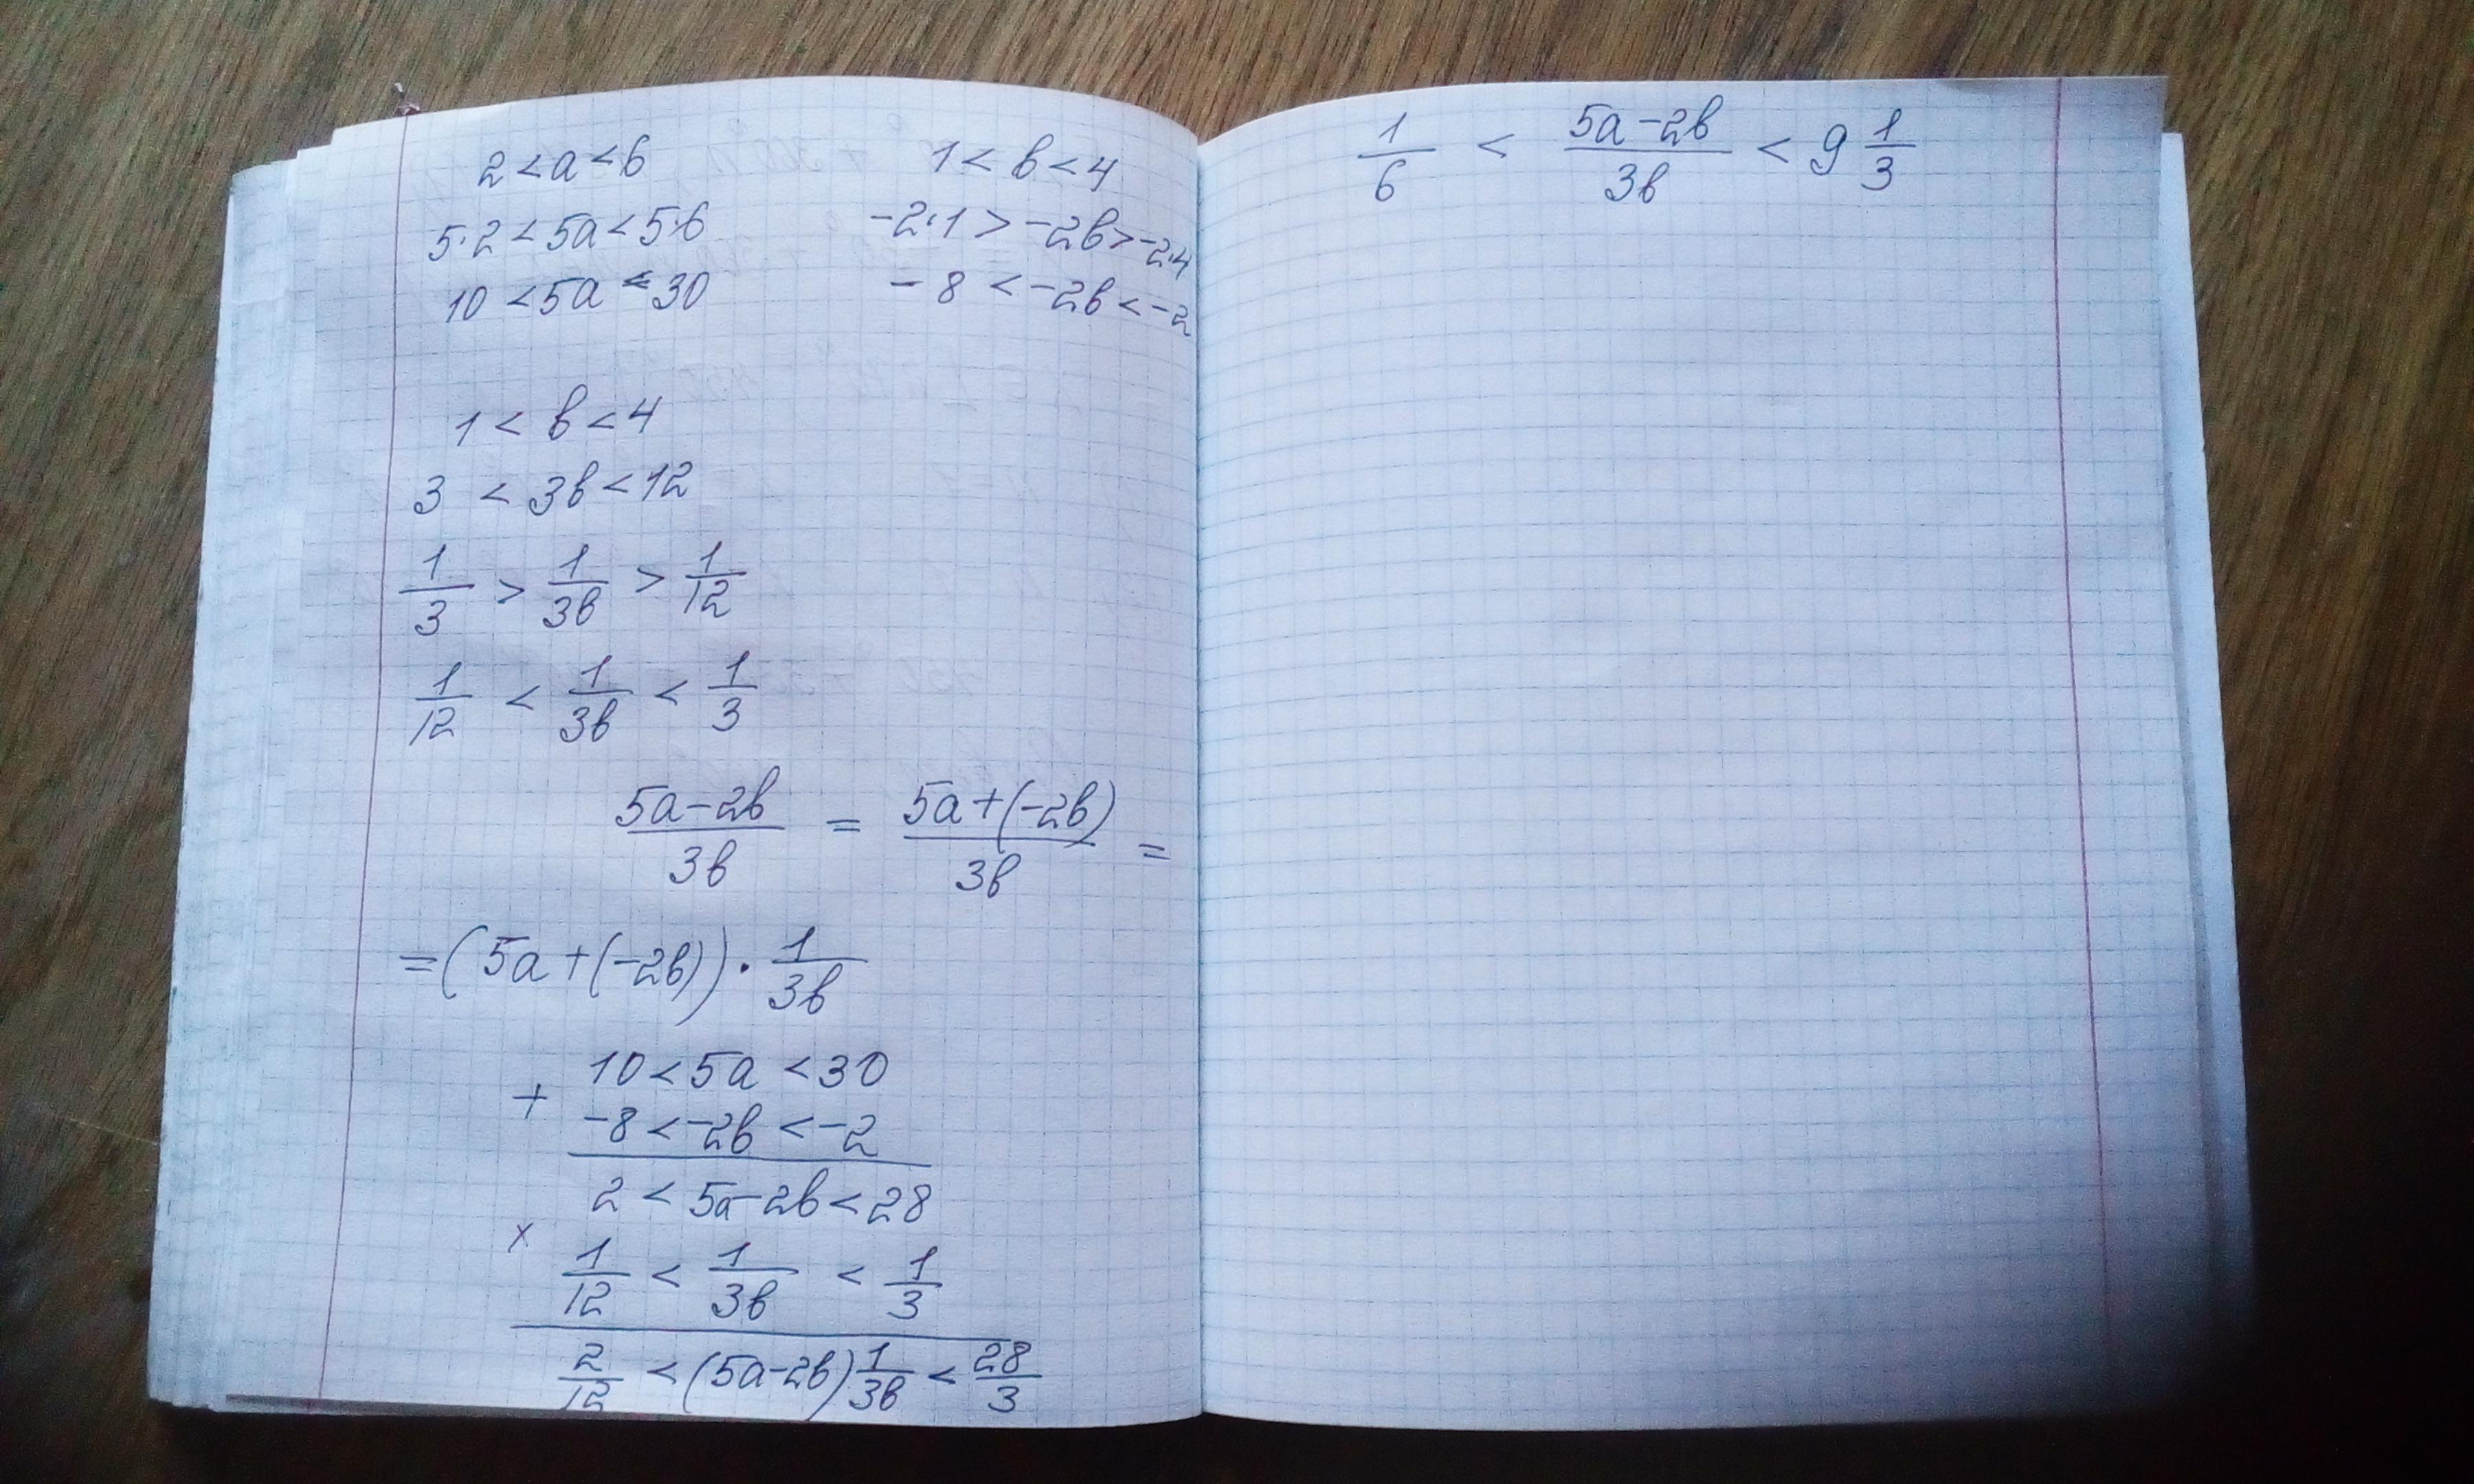 2 < a < 6      1 < b < 4
5·2 < 5a < 5·6      -2·1 > -2b > -2·4
10 < 5a < 30      -8 < -2b < -2
1 < b < 4
3 < 3b < 12
1/3 > 1/3b > 1/12
1/12 < 1/3b < 1/3
5a-2b/3b = 5a+(-2b)/3b =
= (5a+(-2b)) · 1/3b
+ 10 < 5a < 30
-8 < -2b < -2
2 < 5a-2b < 28
× 1/12 < 1/3b < 1/3
2/12 < (5a-2b) 1/3b < 28/3
1/6 < 5a-2b/3b < 9 1/3